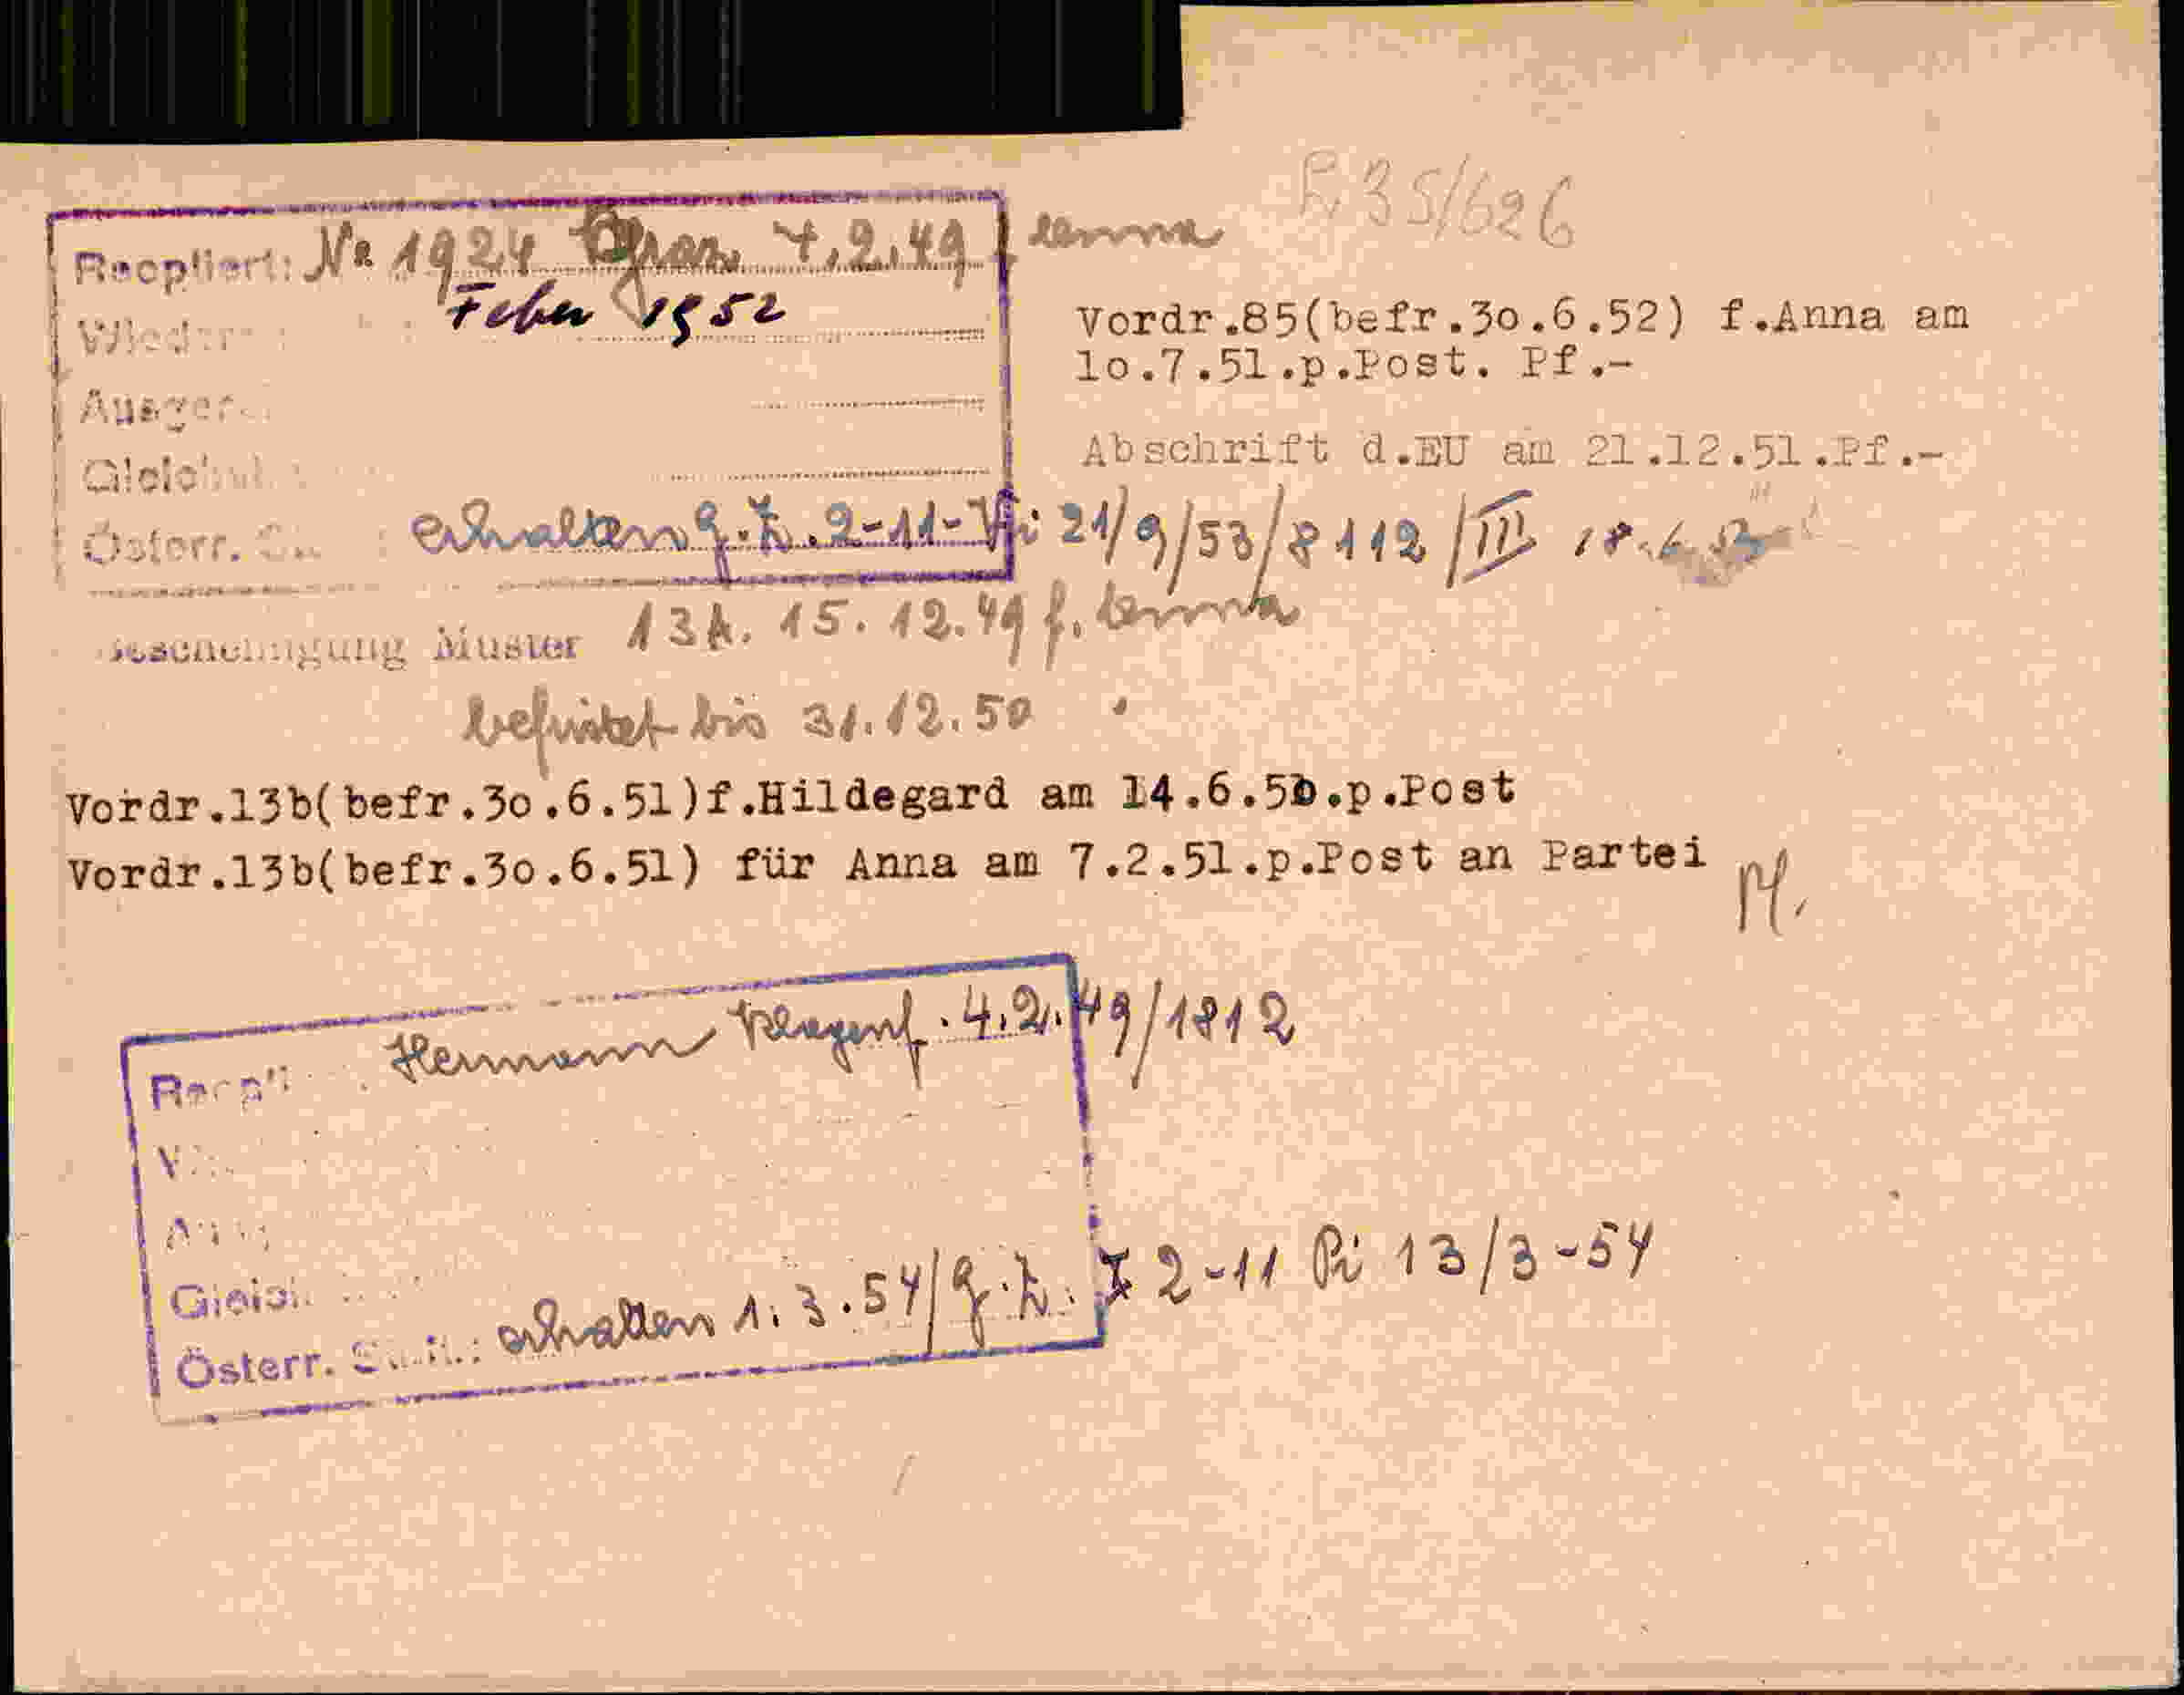 35/626
Reoptiert: No 1924 Graz 4.2.49 f. Anna
Feber 1952
Österr. erhalten g.Z. 2-11- 21/9/53/8112/III 18.6.
Vordr.85(befr.30.6.52) f.Anna am
10.7.51.p.Post. Pf.-
Abschrift d.EU am 21.12.51.Pf.-
Bescheinigung Muster 13A. 15.12.49 f. Anna
befristet bis 31.12.50
Vordr.13b(befr.30.6.51)f.Hildegard am 14.6.50.p.Post
Vordr.13b(befr.30.6.51) für Anna am 7.2.51.p.Post an Partei
Pf.
Hermann Klagenf. 4.2.49/1812
Österr. erhalten 1.3.54/g.Z. I 2-11 Pi 13/3-54